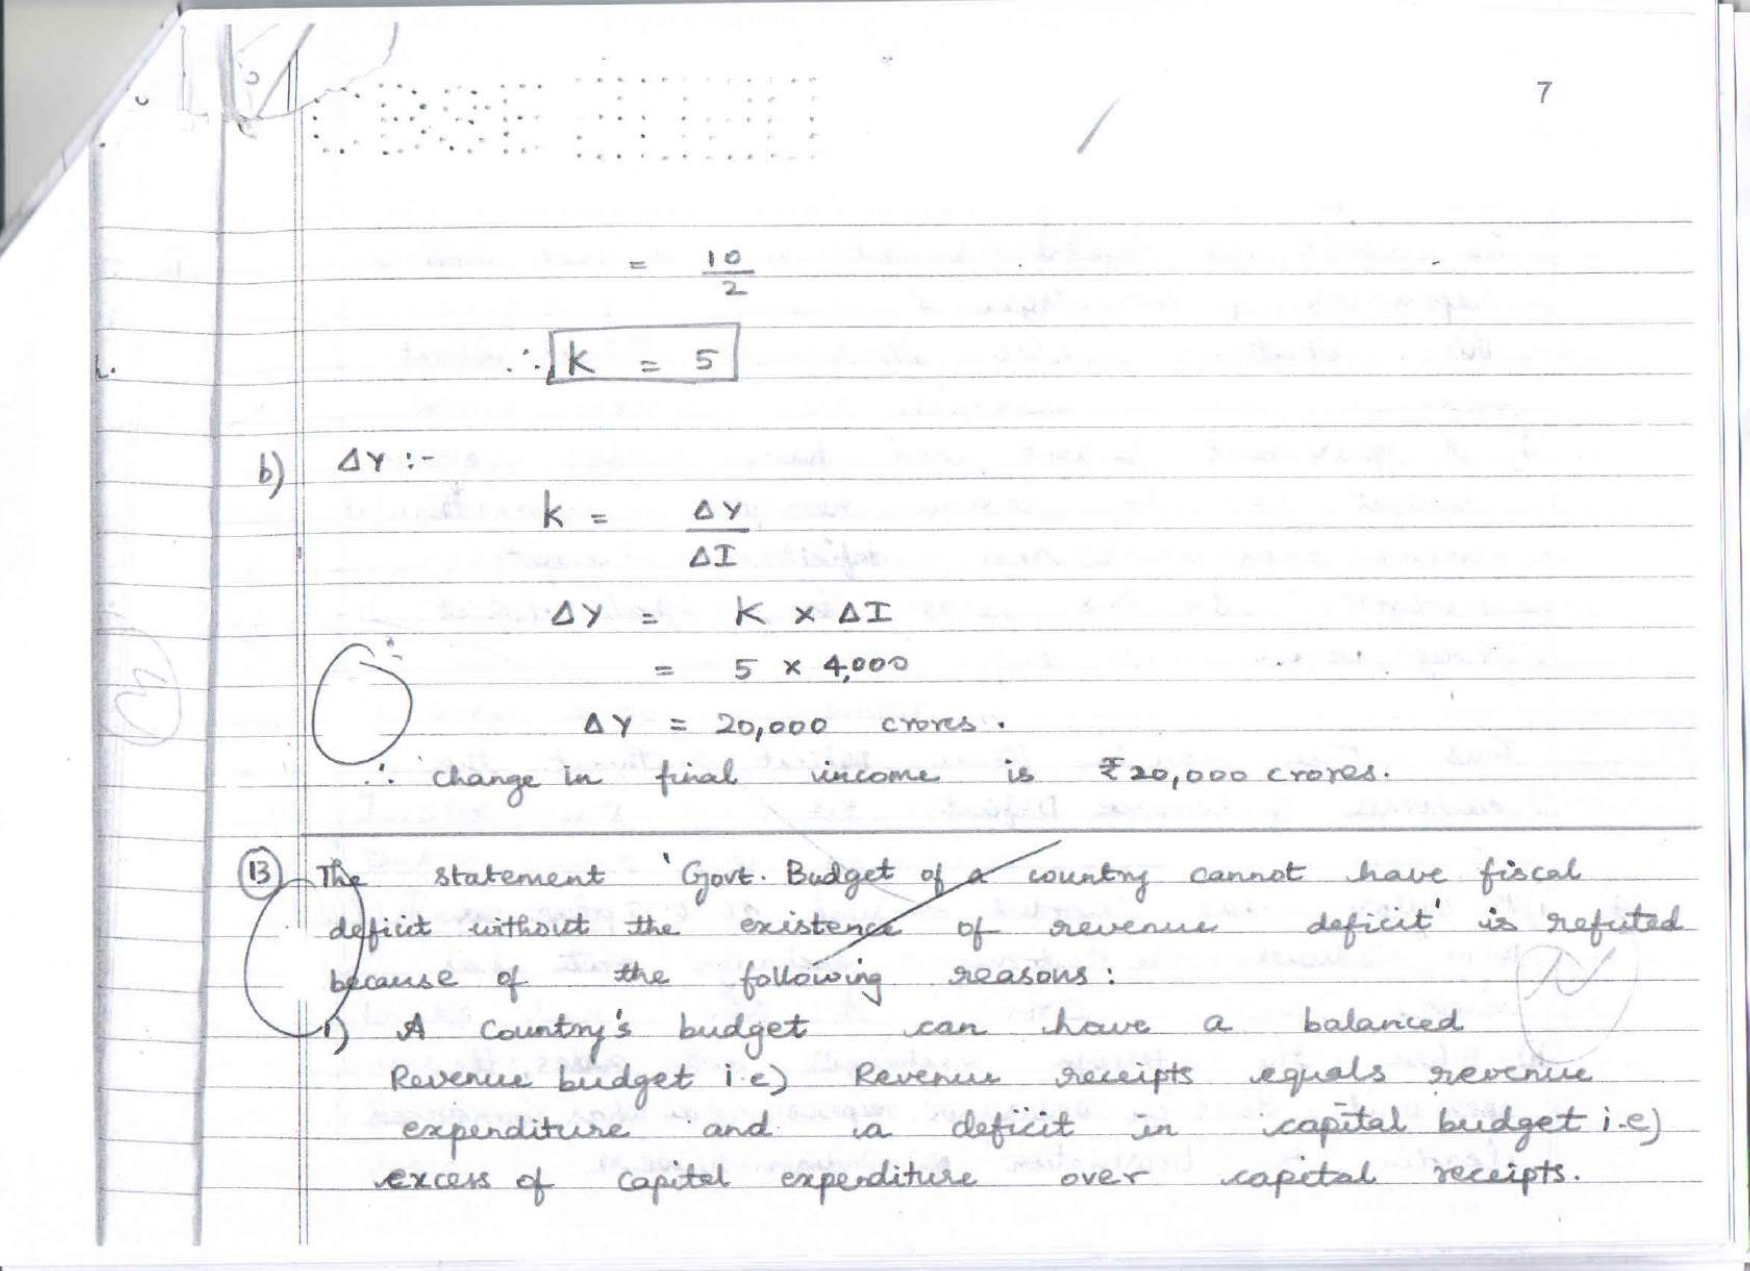 CBSE
7
= 10/2
∴ k = 5
b) ΔY :-
k = ΔY/ΔI
ΔY = K × ΔI
= 5 × 4,000
ΔY = 20,000 crores.
∴ change in final income is ₹20,000 crores.
13 The statement 'Govt. Budget of a country cannot have fiscal
deficit without the existence of revenue deficit' is refuted
because of the following reasons:
1) A Country's budget can have a balanced
Revenue budget i.e) Revenue receipts equals revenue
expenditure and a deficit in capital budget i.e)
excess of capital expenditure over capital receipts.